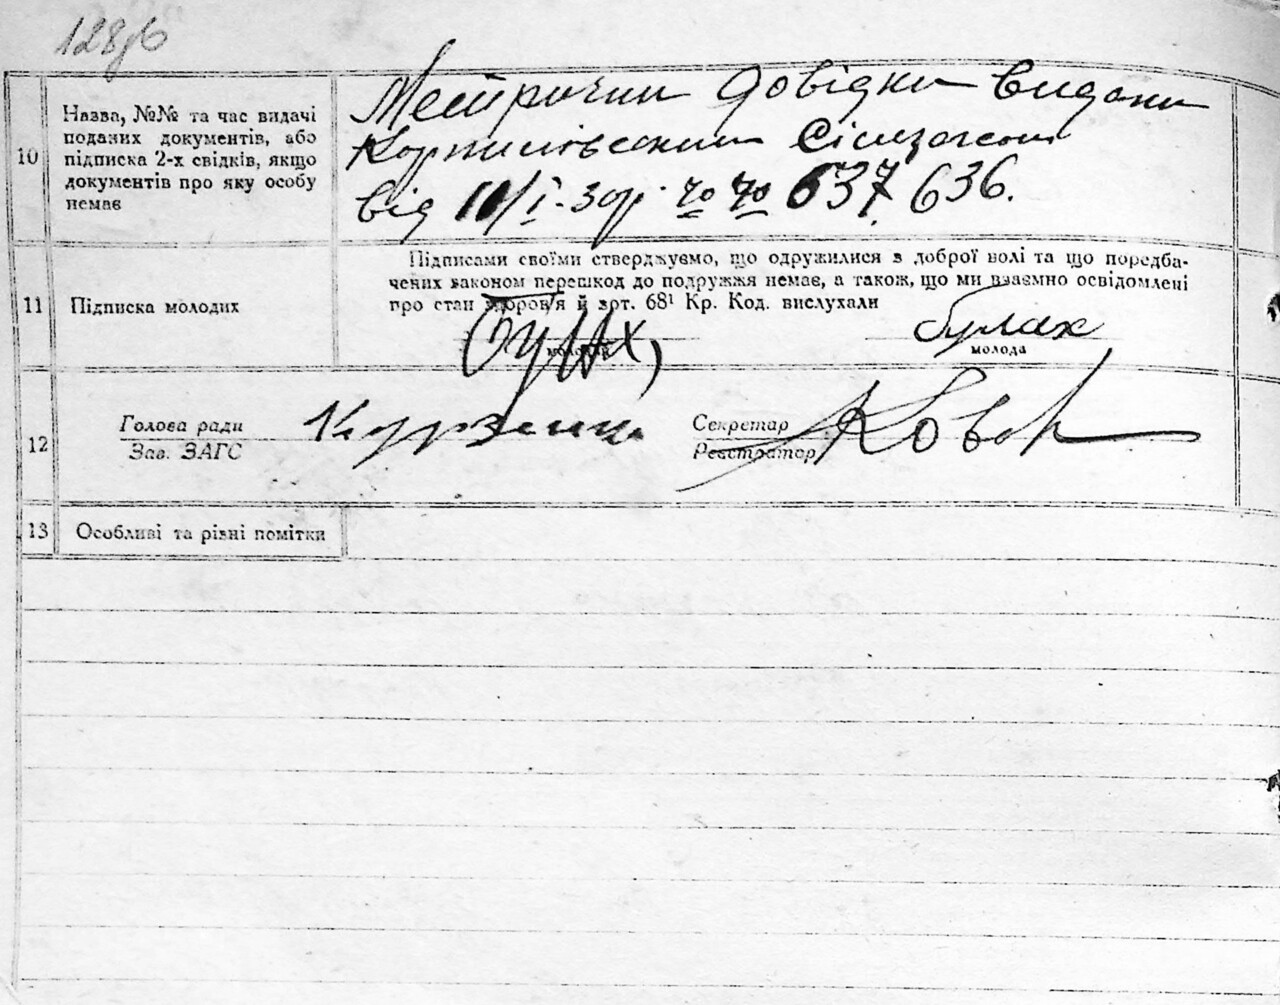 128/б
10
Назва, №№ та час видачі
поданих документів, або
підписка 2-х свідків, якщо
документів про яку особу
немає
Метричні довідки видані
Корпилівським Сільзагсом
від 11/I-30р. №№ 637, 636.
11
Підписка молодих
Підписами своїми стверджуємо, що одружилися з доброї волі та що передба-
чених законом перешкод до подружжя немає, а також, що ми взаємно освідомлені
про стан здоров'я й арт. 68¹ Кр. Код. вислухали
Булах
молодий
булах
молода
12
Голова ради
Зав. ЗАГС
Секретар
Реєстратор
Ковал
13
Особливі та різні помітки